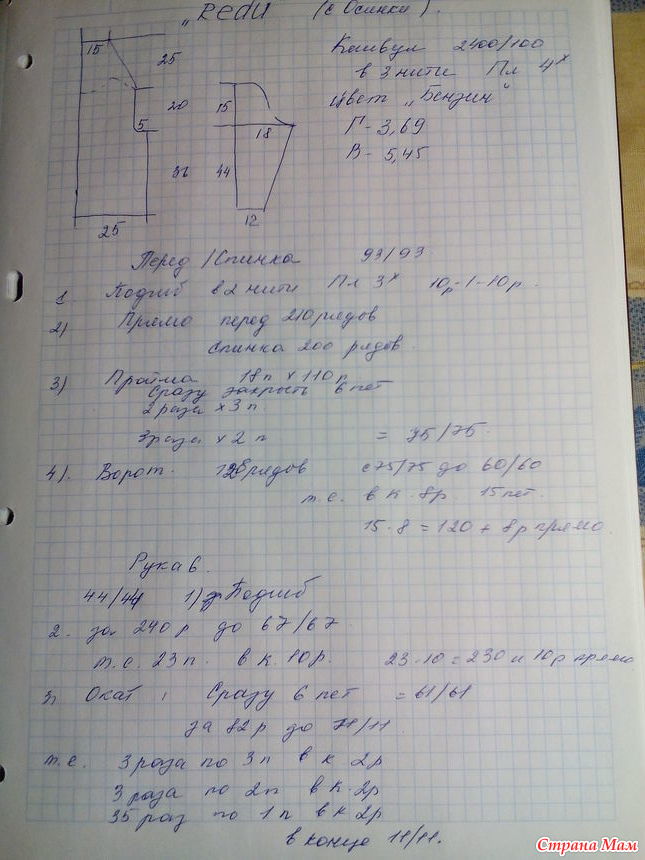 „Redu (с Осинки).
15
25
20
5
36
25
15
18
44
12
Камвул 2400/100
в 3 нити Пл 4х
Цвет „Бензин"
Г - 3,69
В - 5,45
Перед / Спинка 93/93
1. Подгиб в 2 нити Пл 3х 10р-1-10р.
2) Прямо перед 210 рядов
Спинка 200 рядов.
3) Пройма 18п х 110 р
Сразу закрыть 6 пет
2 раза х 3 п.
3 раза х 2 п = 75/75.
4). Ворот. 128 рядов с 75/75 до 60/60
т.е. в к. 8р 15 пет.
15·8 = 120 + 8р прямо.
Рукав.
44/44 1) Подгиб
2. за 240 р до 67/67.
т.е. 23п. в к. 10р. 23·10 = 230 и 10р прямо
3, Окат, Сразу 6 пет = 61/61
за 82 р до 11/11.
т.е. 3 раза по 3п в к 2р
3 раза по 2п в к. 2р
35 раз по 1п в к 2р
в конце 11/11.
Страна Мам